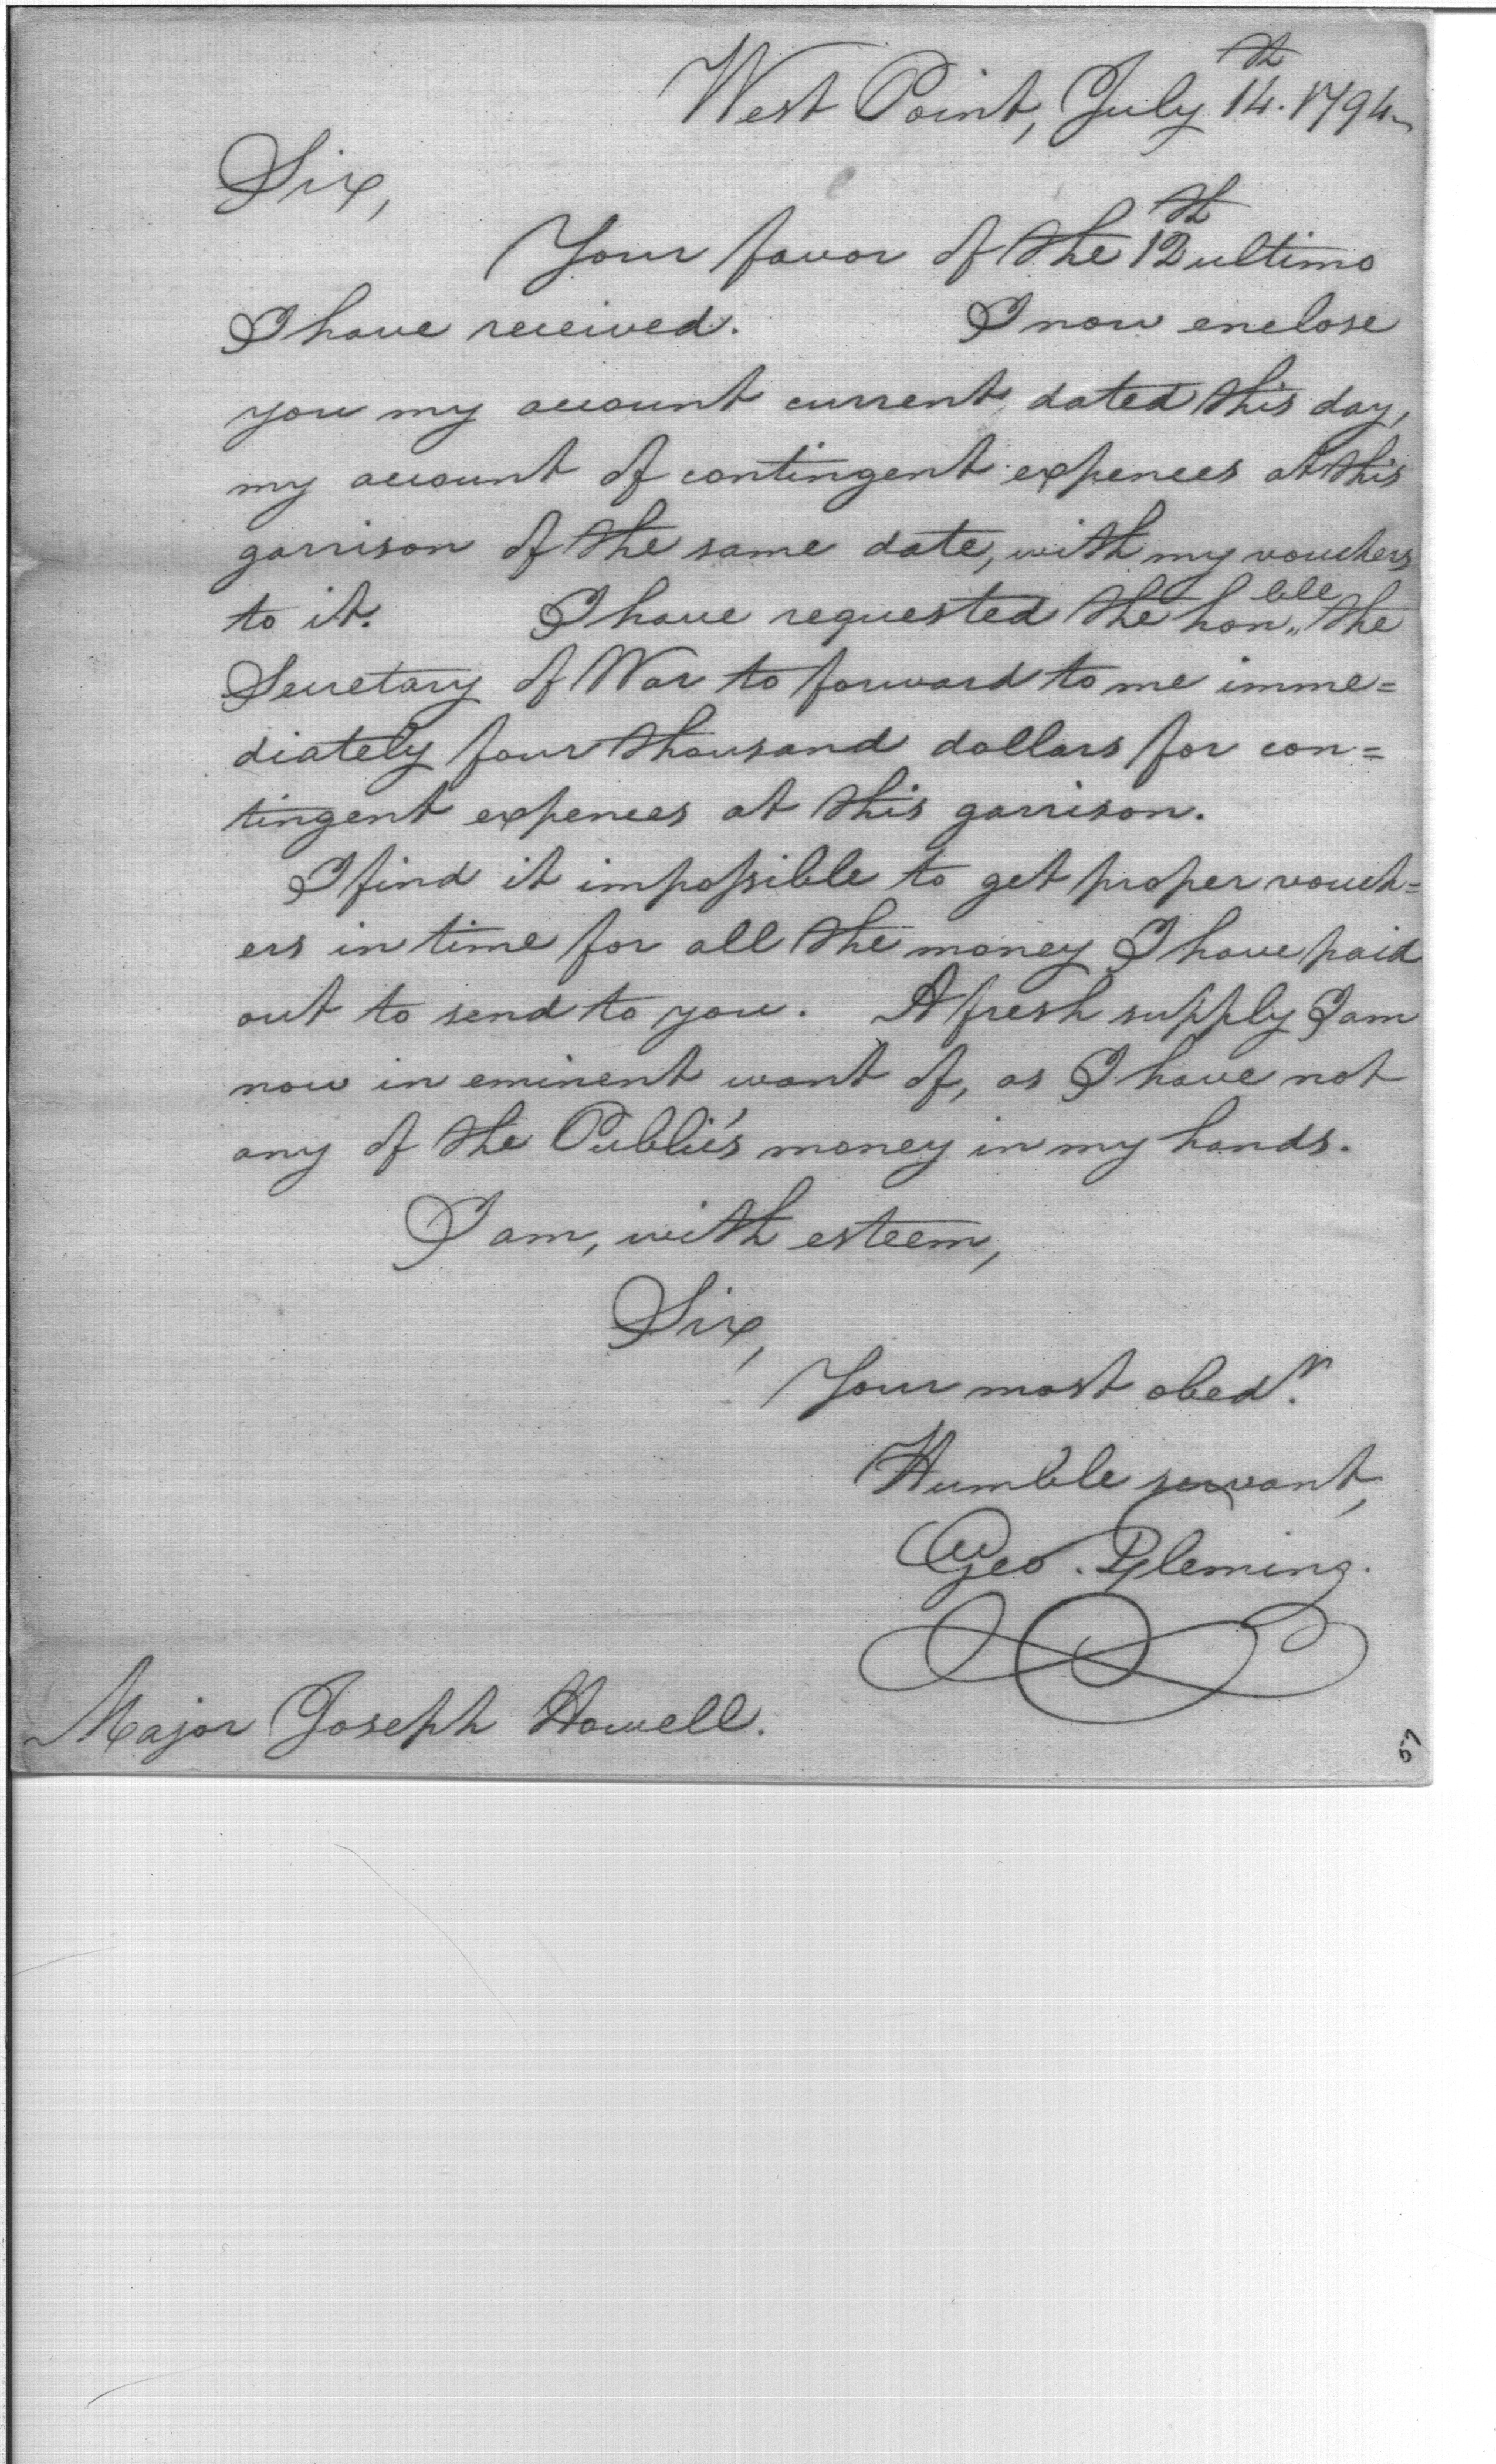 West Point, July 14th. 1794
Sir,
Your favor of the 12th ultimo
I have received. I now enclose
you my account current, dated this day,
my account of contingent expences at this
garrison of the same date, with my vouchers
to it. I have requested the honble the
Secretary of War to forward to me imme=
diately four thousand dollars for con=
tingent expences at this garrison.
I find it impossible to get proper vouch=
ers in time for all the money I have paid
out to send to you. A fresh supply I am
now in eminent want of, as I have not
any of the Public's money in my hands.
I am, with esteem,
Sir,
Your most obedt.
Humble servant,
Geo. Fleming.
Major Joseph Howell.
57